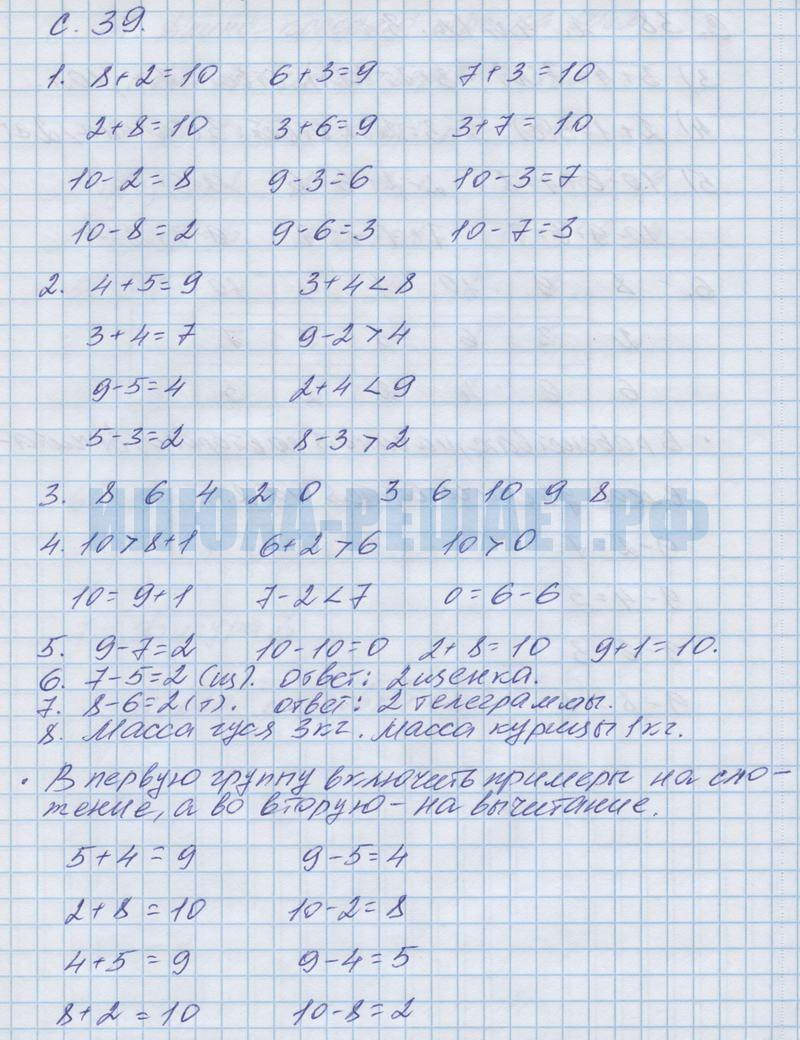 с. 39.
1. 8+2=10 6+3=9 7+3=10
2+8=10 3+6=9 3+7=10
10-2=8 9-3=6 10-3=7
10-8=2 9-6=3 10-7=3
2. 4+5=9 3+4<8
3+4=7 9-2>4
9-5=4 2+4<9
5-3=2 8-3>2
3. 8 6 4 2 0 3 6 10 9 8
ИЛЮХА-РЕШАЕТ.РФ
4. 10>8+1 6+2>6 10>0
10=9+1 7-2<7 0=6-6
5. 9-7=2 10-10=0 2+8=10 9+1=10.
6. 7-5=2 (щ). ответ: 2 щенка.
7. 8-6=2 (т). ответ: 2 телеграммы.
8. Масса гуся 3кг. Масса курицы 1кг.
· В первую группу включить примеры на сло-
жение, а во вторую - на вычитание.
5+4=9 9-5=4
2+8=10 10-2=8
4+5=9 9-4=5
8+2=10 10-8=2